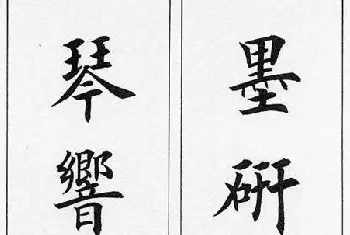 墨研
琴響